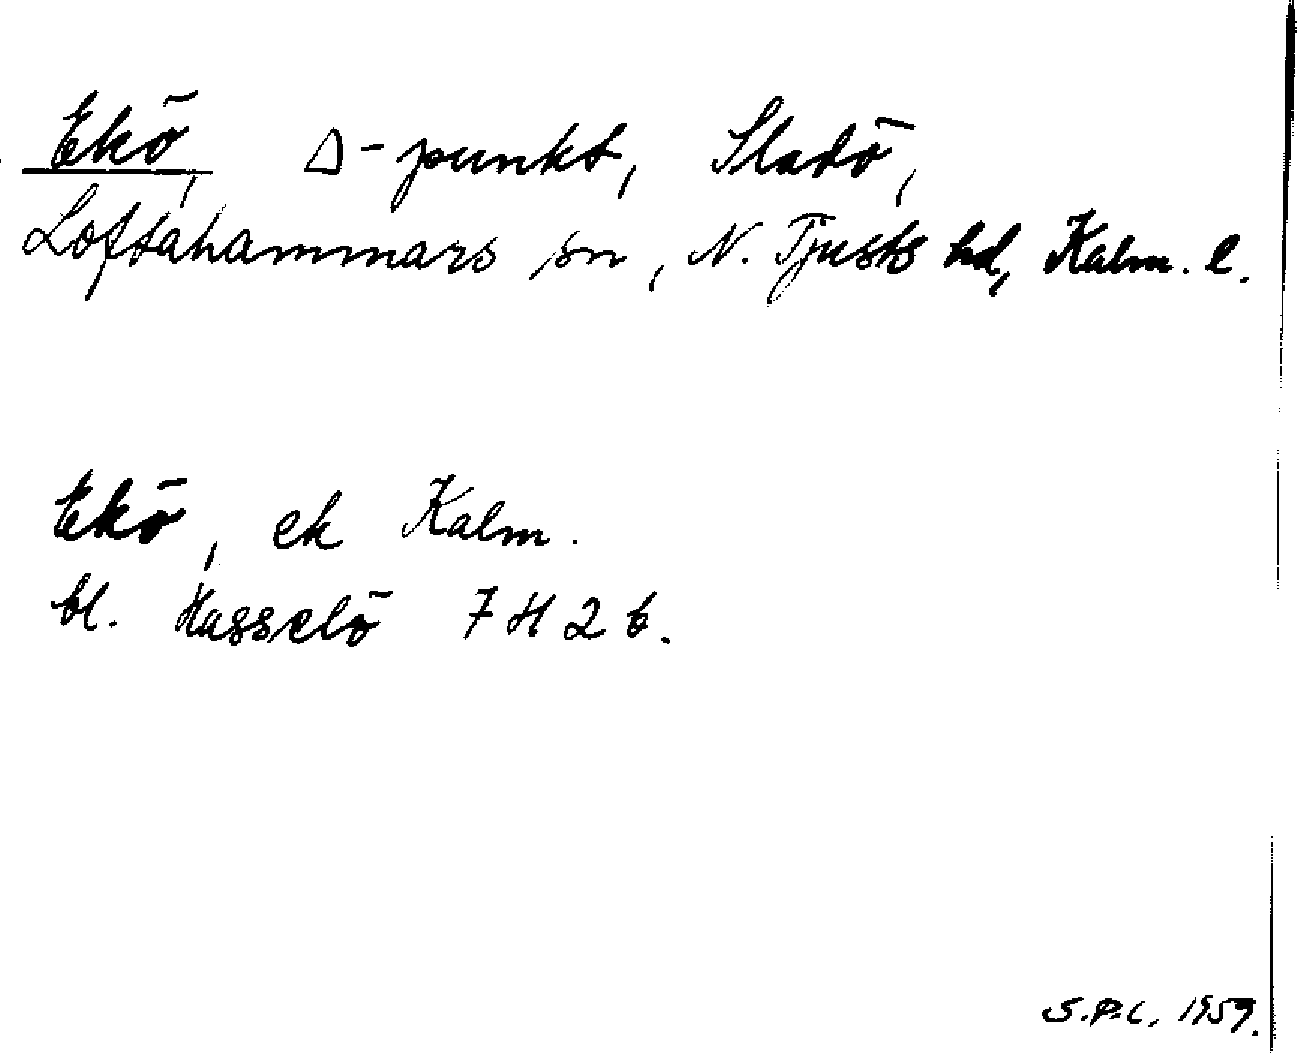 Ekö, Δ-punkt, Sladö,
Loftahammars sn, N. Tjusts hd, Kalm. l.
Ekö, ek Kalm.
bl. Hasselö 7 H 2 b.
S.P.L. 1959.